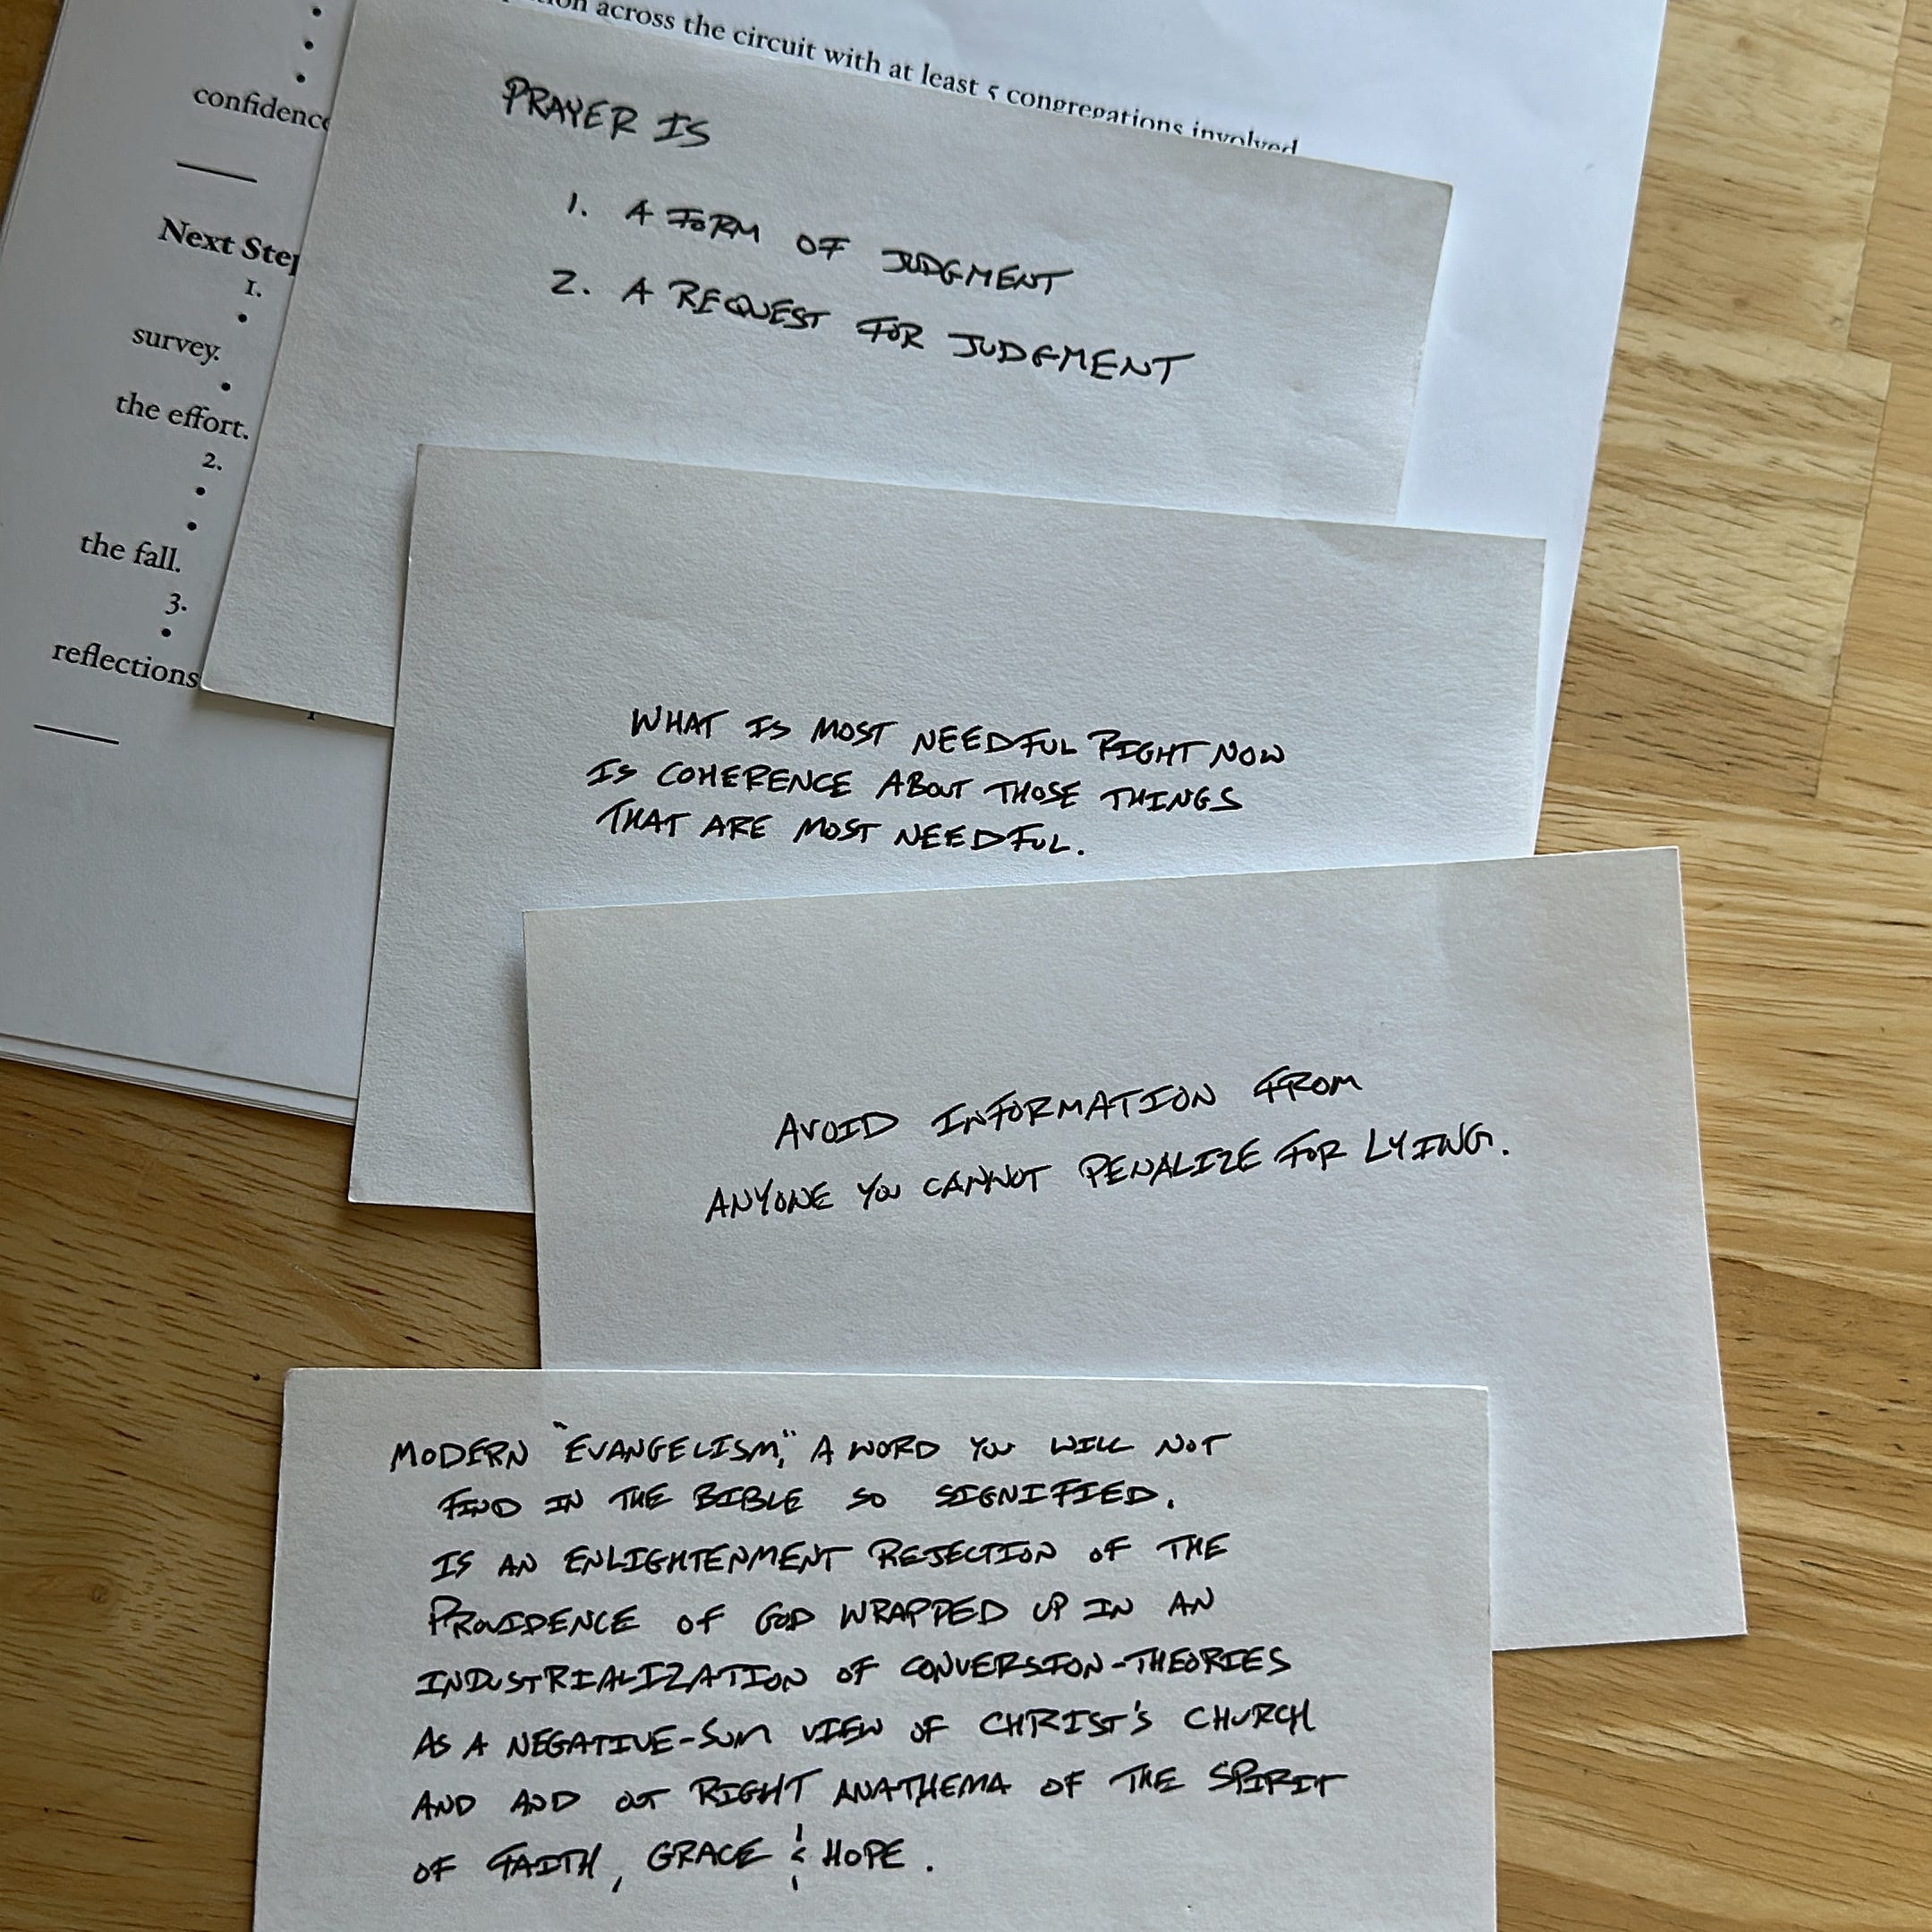 across the circuit with at least 5 congregations involved
confidence
Next Step
1.
survey.
the effort.
2.
the fall.
3.
reflections
PRAYER IS
1. A FORM OF JUDGMENT
2. A REQUEST FOR JUDGMENT
WHAT IS MOST NEEDFUL RIGHT NOW
IS COHERENCE ABOUT THOSE THINGS
THAT ARE MOST NEEDFUL.
AVOID INFORMATION FROM
ANYONE YOU CANNOT PENALIZE FOR LYING.
MODERN "EVANGELISM," A WORD YOU WILL NOT
FIND IN THE BIBLE SO SIGNIFIED.
IS AN ENLIGHTENMENT REJECTION OF THE
PROVIDENCE OF GOD WRAPPED UP IN AN
INDUSTRIALIZATION OF CONVERSION-THEORIES
AS A NEGATIVE-SUM VIEW OF CHRIST'S CHURCH
AND AND OUT RIGHT ANATHEMA OF THE SPIRIT
OF FAITH, GRACE & HOPE.